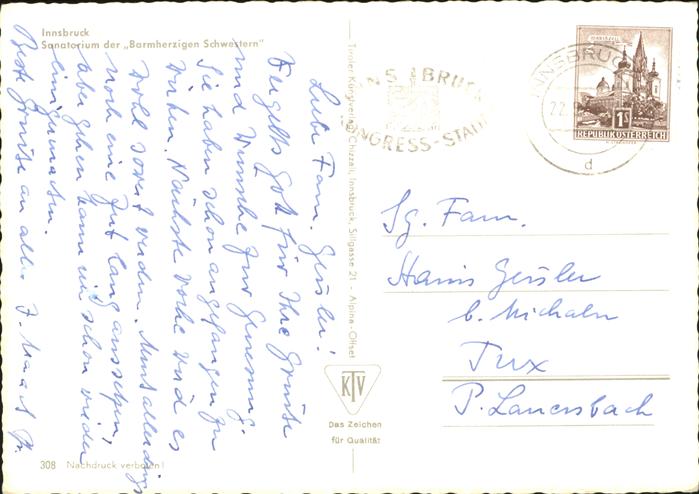 Innsbruck
Sanatorium der „Barmherzigen Schwestern"
Liebe Fam. Geisler!
Vergelts Gott für Ihre Grüsse
und Wünsche zur Genesung.
Sie haben schon angefangen zu
wirken. Nächste Woche wird es
wohl soweit werden. Muss allerdings
noch eine Zeit lang aussetzen,
aber gehen kann ich schon wieder
einigermassen.
Beste Grüsse an alle
Tiroler Kunstverlag Chizzali, Innsbruck, Sillgasse 21 - Alpina-Offset
INNSBRUCK
KONGRESS-STADT
INNSBRUCK
22
d
MARIAZELL
1S
REPUBLIK ÖSTERREICH
Sg. Fam.
Hanis Geisler
b. Michaeln
Tux
P. Lanersbach
KTV
Das Zeichen
für Qualität
308 Nachdruck verboten!